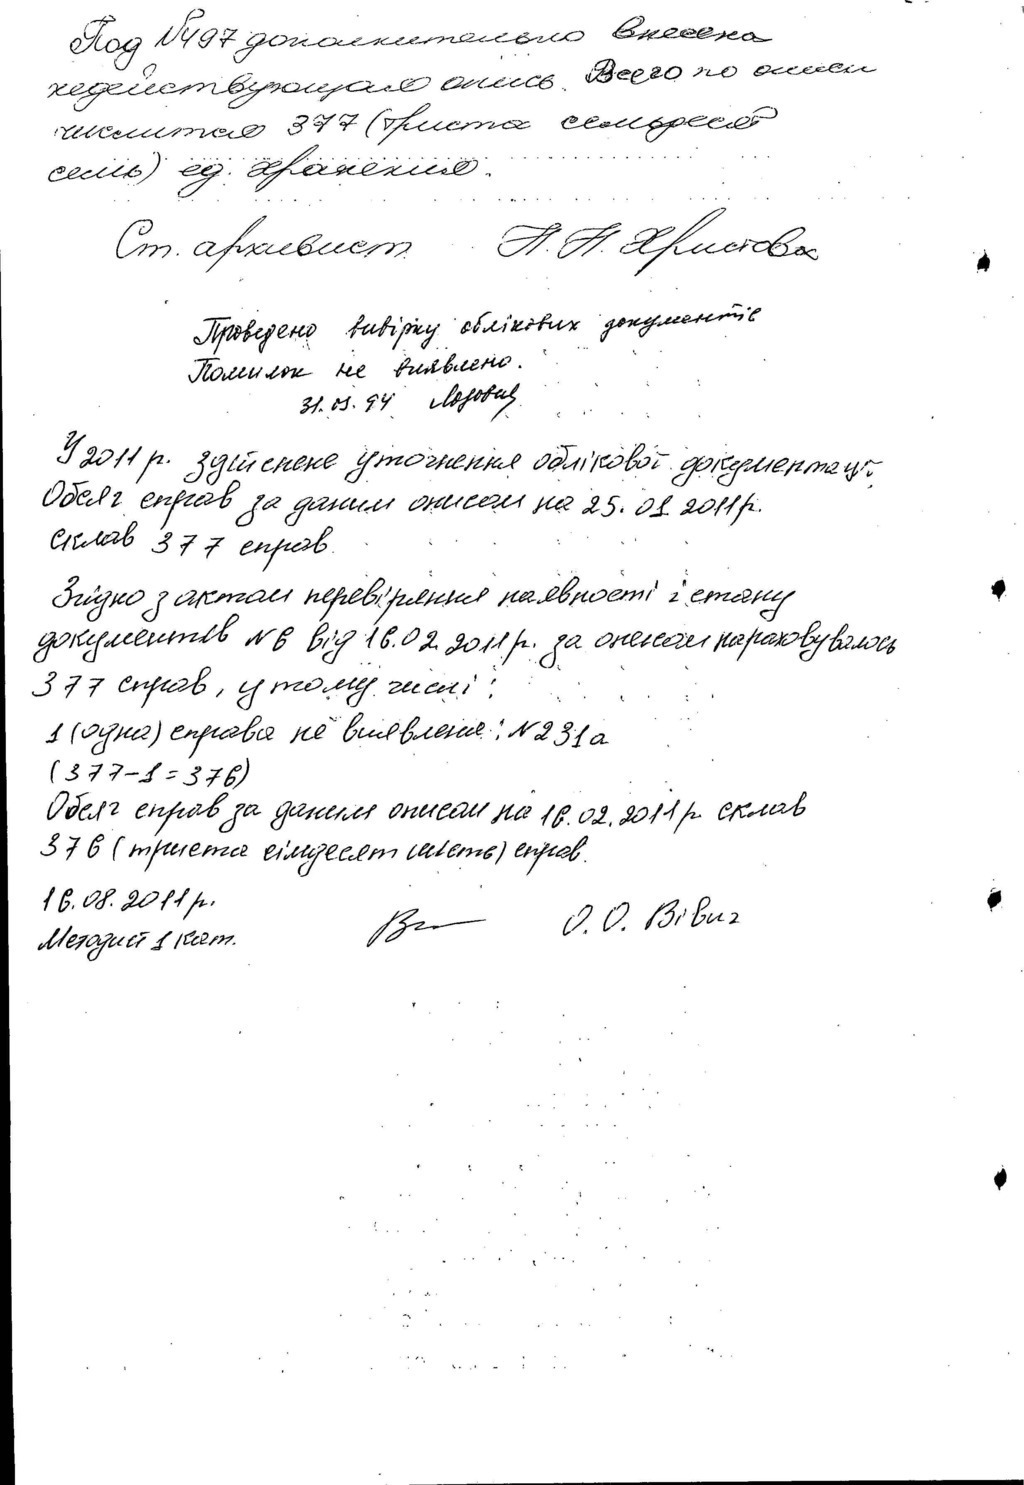 Под №497 дополнительно внесена
недействующая опись. Всего по описи
числится 377 (триста семьдесят
семь) ед. хранения.
Ст. архивист Н. Н. Христова
Проведено вивірку облікових документів
Помилок не виявлено.
31.03.94
У 2011 р. здійснене уточнення облікової документації.
Обсяг справ за даним описом на 25.01.2011р.
склав 377 справ.
Згідно з актом перевіряння наявності і стану
документів №6 від 16.02.2011р. за описом нараховувалось
377 справ, у тому числі:
1 (одна) справа не виявлена: №231а
(377-1=376)
Обсяг справ за даним описом на 16.02.2011р склав
376 (триста сімдесят шість) справ.
16.08.2011р.
Методист 1 кат. О. О. Вівич